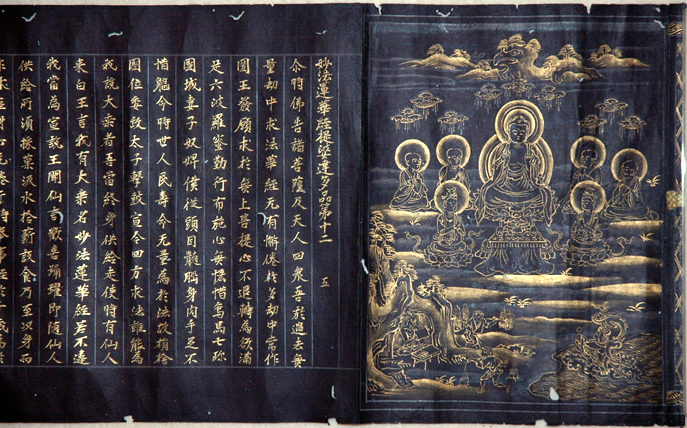 妙法蓮華經提婆達多品第十二 五
尒時佛告諸菩薩及天人四衆吾於過去無
量劫中求法華經无有懈倦於多劫中常作
國王發願求於無上菩提心不退轉為欲滿
足六波羅蜜勤行布施心無悋惜象馬七珎
國城妻子奴婢僕從頭目髓腦身肉手足不
惜軀命時世人民壽命无量為於法故捐捨
國位委政太子擊鼓宣令四方求法誰能為
我說大乗者吾當終身供給走使時有仙人
来白王言我有大乗名妙法蓮華經若不違
我當為宣說王聞仙言歡喜踊躍即随仙人
供給所湏採菓汲水拾薪設食乃至以身而